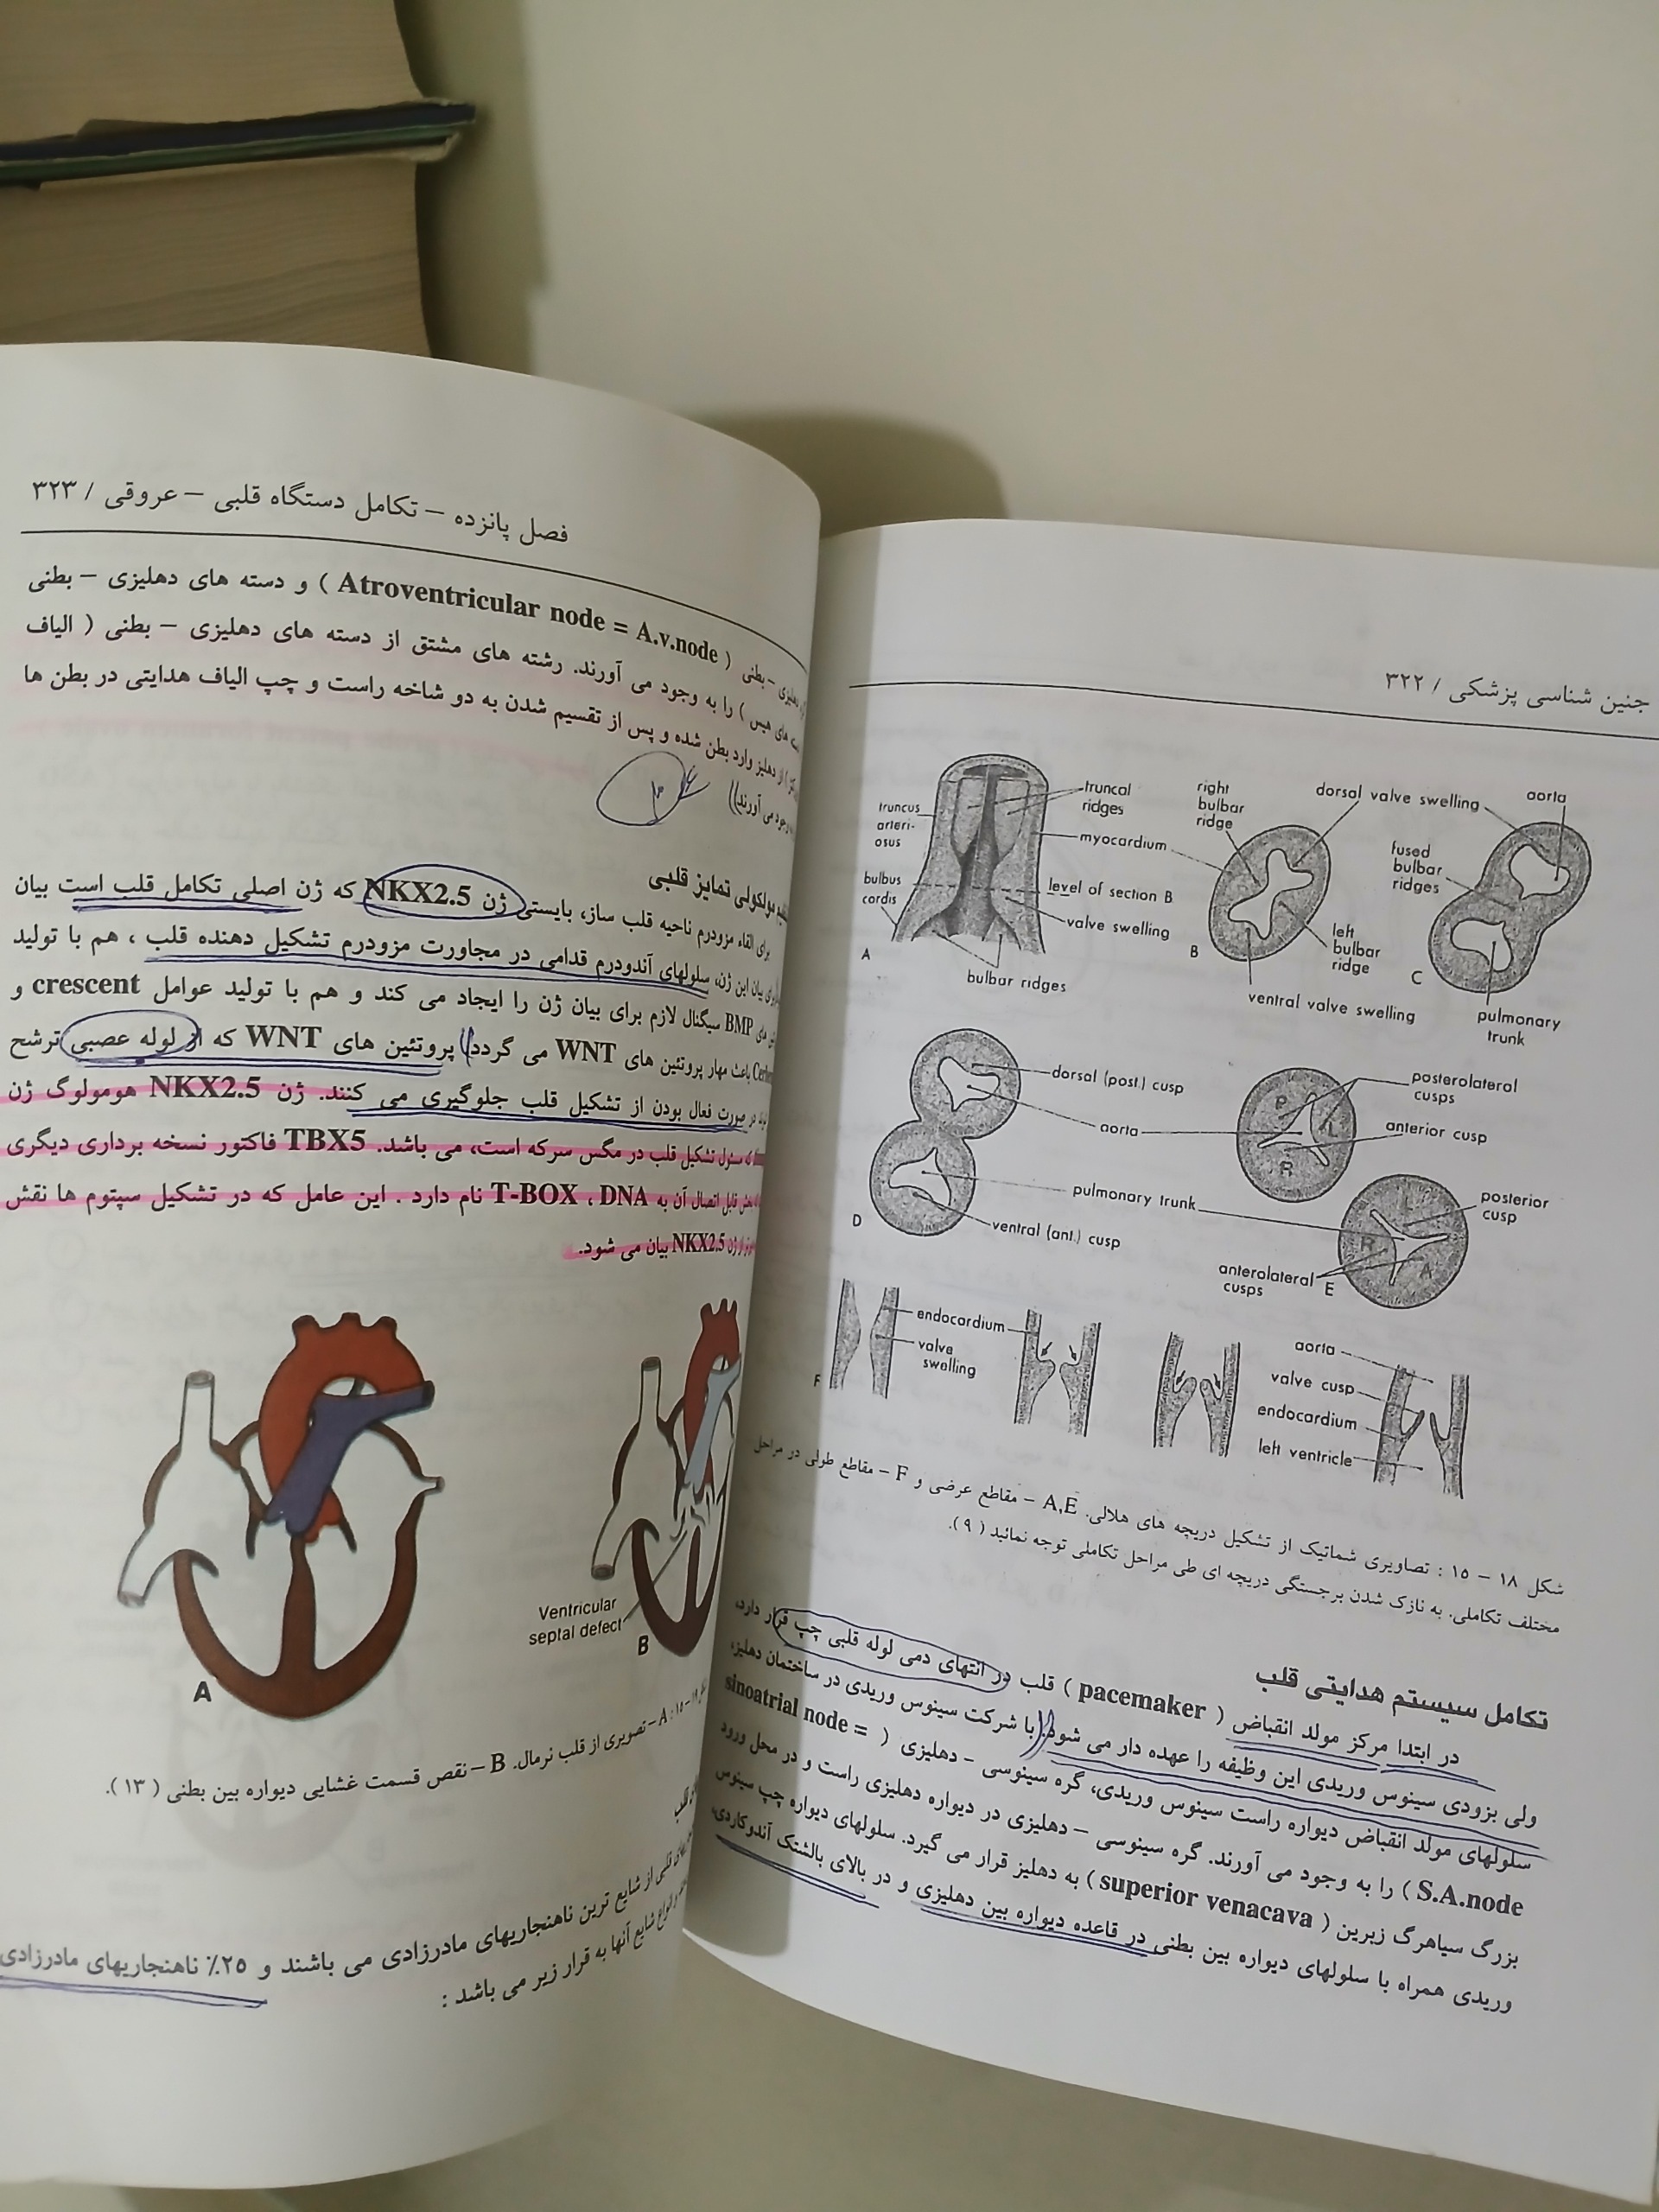 جنین شناسی پزشکی / ۳۲۲
truncus arteri-osus
truncal ridges
myocardium
bulbus cordis
level of section B
valve swelling
bulbar ridges
A
right bulbar ridge
dorsal valve swelling
left bulbar ridge
ventral valve swelling
B
aorta
fused bulbar ridges
C
pulmonary trunk
dorsal (post.) cusp
aorta
pulmonary trunk
ventral (ant.) cusp
D
posterolateral cusps
anterior cusp
P
L
R
posterior cusp
L
R
A
anterolateral cusps
E
endocardium
valve swelling
F
aorta
valve cusp
endocardium
left ventricle
شکل ۱۸ – ۱۵ : تصاویری شماتیک از تشکیل دریچه های هلالی. A,E – مقاطع عرضی و F – مقاطع طولی در مراحل
مختلف تکاملی. به نازک شدن برجستگی دریچه ای طی مراحل تکاملی توجه نمائید ( ۹ ).
تکامل سیستم هدایتی قلب
در ابتدا مرکز مولد انقباض ( pacemaker ) قلب در انتهای دمی لوله قلبی چپ قرار دارد،
ولی بزودی سینوس وریدی این وظیفه را عهده دار می شود. با شرکت سینوس وریدی در ساختمان دهلیز،
سلولهای مولد انقباض دیواره راست سینوس وریدی، گره سینوسی – دهلیزی ( sinoatrial node =
S.A.node ) را به وجود می آورند. گره سینوسی – دهلیزی در دیواره دهلیزی راست و در محل ورود
بزرگ سیاهرگ زبرین ( superior venacava ) به دهلیز قرار می گیرد. سلولهای دیواره چپ سینوس
وریدی همراه با سلولهای دیواره بین بطنی در قاعده دیواره بین دهلیزی و در بالای بالشتک آندوکاردی،
فصل پانزده – تکامل دستگاه قلبی – عروقی / ۳۲۳
دهلیزی – بطنی ( Atroventricular node = A.v.node ) و دسته های دهلیزی – بطنی
های هیس ) را به وجود می آورند. رشته های مشتق از دسته های دهلیزی – بطنی ( الیاف
از دهلیز وارد بطن شده و پس از تقسیم شدن به دو شاخه راست و چپ الیاف هدایتی در بطن ها
وجود می آورند
مولکولی تمایز قلبی
برای القاء مزودرم ناحیه قلب ساز، بایستی ژن NKX2.5 که ژن اصلی تکامل قلب است بیان
برای بیان این ژن، سلولهای آندودرم قدامی در مجاورت مزودرم تشکیل دهنده قلب ، هم با تولید
های BMP سیگنال لازم برای بیان ژن را ایجاد می کند و هم با تولید عوامل crescent و
باعث مهار پروتئین های WNT می گردد. پروتئین های WNT که از لوله عصبی ترشح
در صورت فعال بودن از تشکیل قلب جلوگیری می کنند. ژن NKX2.5 هومولوگ ژن
که مسئول تشکیل قلب در مگس سرکه است، می باشد. TBX5 فاکتور نسخه برداری دیگری
بخش قابل اتصال آن به DNA ، T-BOX نام دارد . این عامل که در تشکیل سپتوم ها نقش
از ژن NKX2.5 بیان می شود.
A
Ventricular septal defect
B
۱۹ – ۱۵ : A – تصویری از قلب نرمال. B – نقص قسمت غشایی دیواره بین بطنی ( ۱۳ ).
قلب
قلبی از شایع ترین ناهنجاریهای مادرزادی می باشند و ۲۵٪ ناهنجاریهای مادرزادی
انواع شایع آنها به قرار زیر می باشد :